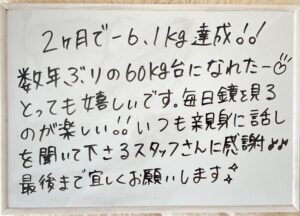 2ヶ月で-6.1kg達成!!
数年ぶりの60kg台になれたー
とっても嬉しいです。毎日鏡を見る
のが楽しい!!いつも親身に話し
を聞いて下さるスタッフさんに感謝♪♪
最後まで宜しくお願いします